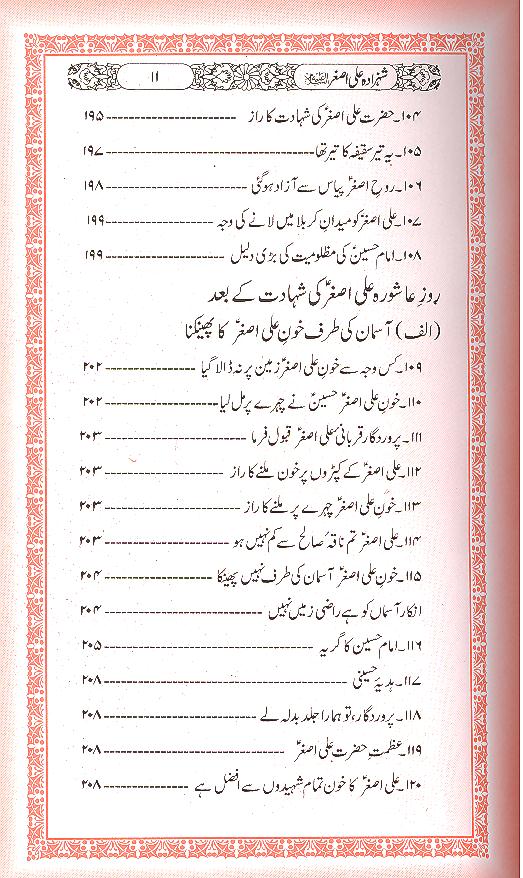 شہزادہ علی اصغرؑ ۱۱
۱۰۴۔حضرت علی اصغرؑ کی شہادت کا راز ---------- ۱۹۵
۱۰۵۔یہ تیر سقیفہ کا تیر تھا ---------- ۱۹۷
۱۰۶۔روحِ اصغرؑ پیاس سے آزاد ہوگئی ---------- ۱۹۸
۱۰۷۔علی اصغرؑ کو میدانِ کربلا میں لانے کی وجہ ---------- ۱۹۹
۱۰۸۔امام حسینؑ کی مظلومیت کی بڑی دلیل ---------- ۱۹۹
روزِ عاشورہ علی اصغرؑ کی شہادت کے بعد
(الف) آسمان کی طرف خونِ علی اصغرؑ کا پھینکنا
۱۰۹۔کس وجہ سے خونِ علی اصغرؑ زمین پر نہ ڈالا گیا ---------- ۲۰۲
۱۱۰۔خونِ علی اصغرؑ حسینؑ نے چہرے پر مل لیا ---------- ۲۰۲
۱۱۱۔پروردگار قربانیٔ علی اصغرؑ قبول فرما ---------- ۲۰۳
۱۱۲۔علی اصغرؑ کے کپڑوں پر خون ملنے کا راز ---------- ۲۰۳
۱۱۳۔خونِ علی اصغرؑ چہرے پر ملنے کا راز ---------- ۲۰۳
۱۱۴۔علی اصغرؑ تم ناقۂ صالح سے کم نہیں ہو ---------- ۲۰۳
۱۱۵۔خونِ علی اصغرؑ آسمان کی طرف نہیں پھینکا ---------- ۲۰۴
انکار آسماں کو ہے راضی زمیں نہیں ---------- ۲۰۴
۱۱۶۔امام حسین کا گریہ ---------- ۲۰۵
۱۱۷۔ہدیۂ حسینی ---------- ۲۰۸
۱۱۸۔پروردگار، تو ہمارا جلد بدلہ لے ---------- ۲۰۸
۱۱۹۔عظمتِ حضرت علی اصغرؑ ---------- ۲۰۸
۱۲۰۔علی اصغرؑ کا خون تمام شہیدوں سے افضل ہے ---------- ۲۰۸